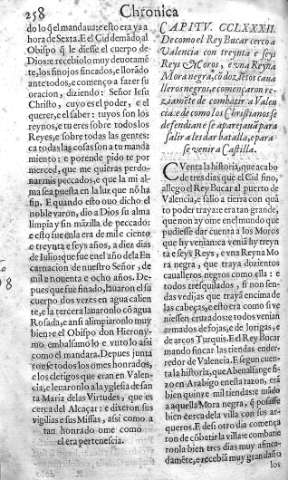 258 Chronica
do lo q̃l mandaua: e esto era ya a
hora de Sexta. E el Cid demãdo al
Obispo q̃ le diesse el cuerpo de
Dios: e recibiolo muy deuotamẽ
te, los finojos fincados, e llorãdo
ante todos, e començo a fazer su
oracion, diziendo: Señor Iesu
Christo, cuyo es el poder, e el
querer, e el saber: tuyos son los
reynos, e tu eres sobre todos los
Reyes, e sobre todas las gentes:e
ca todas las cosas son a tu manda
miento: e porende pido te por
merced, que me quieras perdo-
nar mis peccados, e que la mi al-
ma sea puesta en la luz que nõ ha
fin. E quando esto ouo dicho el
noble varon, dio a Dios su alma
limpia y sin mãzilla de peccado:
e esto fue dia de era de mil e ciento
e treynta e seys años, a diez dias
de Iulio: que fue en el año dela En
carnacion de nuestro Señor, de
mil e nouenta e ocho años. De-
spues que fue finado, lauaron el su
cuerpo dos vezes en agua calien
te, e la tercera lauaronlo cõ agua
Rosada, e ansi alimpiaronlo muy
bien: e el Obispo don Hierony-
mo embalsamolo e vntolo assi
como el mandara. Despues junta
ronse todos los omes honrados,
e los clerigos que eran en Valen-
cia, e leuaronlo a la yglesia de san
ta Maria delas Virtudes, que es
cerca del Alcaçar: e dixeron sus
vigilias e sus Missas, assi como a
tan honrado ome como
el era pertenescia.
CAPITV. CCLXXXII.
De como el Rey Bucar cerco a
Valencia con treynta e seys
Reys Moros, e vna Reyna
Mora negra, cõ dozẽtos caua
lleros negros, e començaron re
ziamẽte de combatir a Valen
cia. e de como los Christianos se
defendian: e se aparejauã para
salir a les dar batalla, e para
se venir a Castilla.
CVenta la historia, que a cabo
de tres dias que el Cid fino,
allego el Rey Bucar al puerto de
Valencia, e salio a tierra con quã
to poder traya: e era tan grande,
que non ay ome en el mundo que
pudiesse dar cuenta a los Moros
que hy venian: ca venia hy treyn
ta e seys Reys, e vna Reyna Mo
ra negra, que traya dozientos
caualleros negros como ella: e
todos tresquilados, si non sen-
das vedijas que trayã encima de
las cabeças, e esto era como si vi
niessen cruzados: e todos venian
armados de fojas, e de lorigas, e
de arcos Turquis. Ed Rey Bucar
mando fincar las tiendas ender-
redor de Valencia. E segun cuen-
ta la historia, que Abenalfange fi
zo en Arabigo en esta razon, erã
bien quinze mil tiendas: e mãdo
a aquella Mora negra, q̃ posasse
bien cerca dela villa con sus ar-
queros. E des otro dia comença
ron de cõbatir la villa: e combatie
ronla bien tres dias muy afinca-
damẽte, e recebiã muy grand afã
los